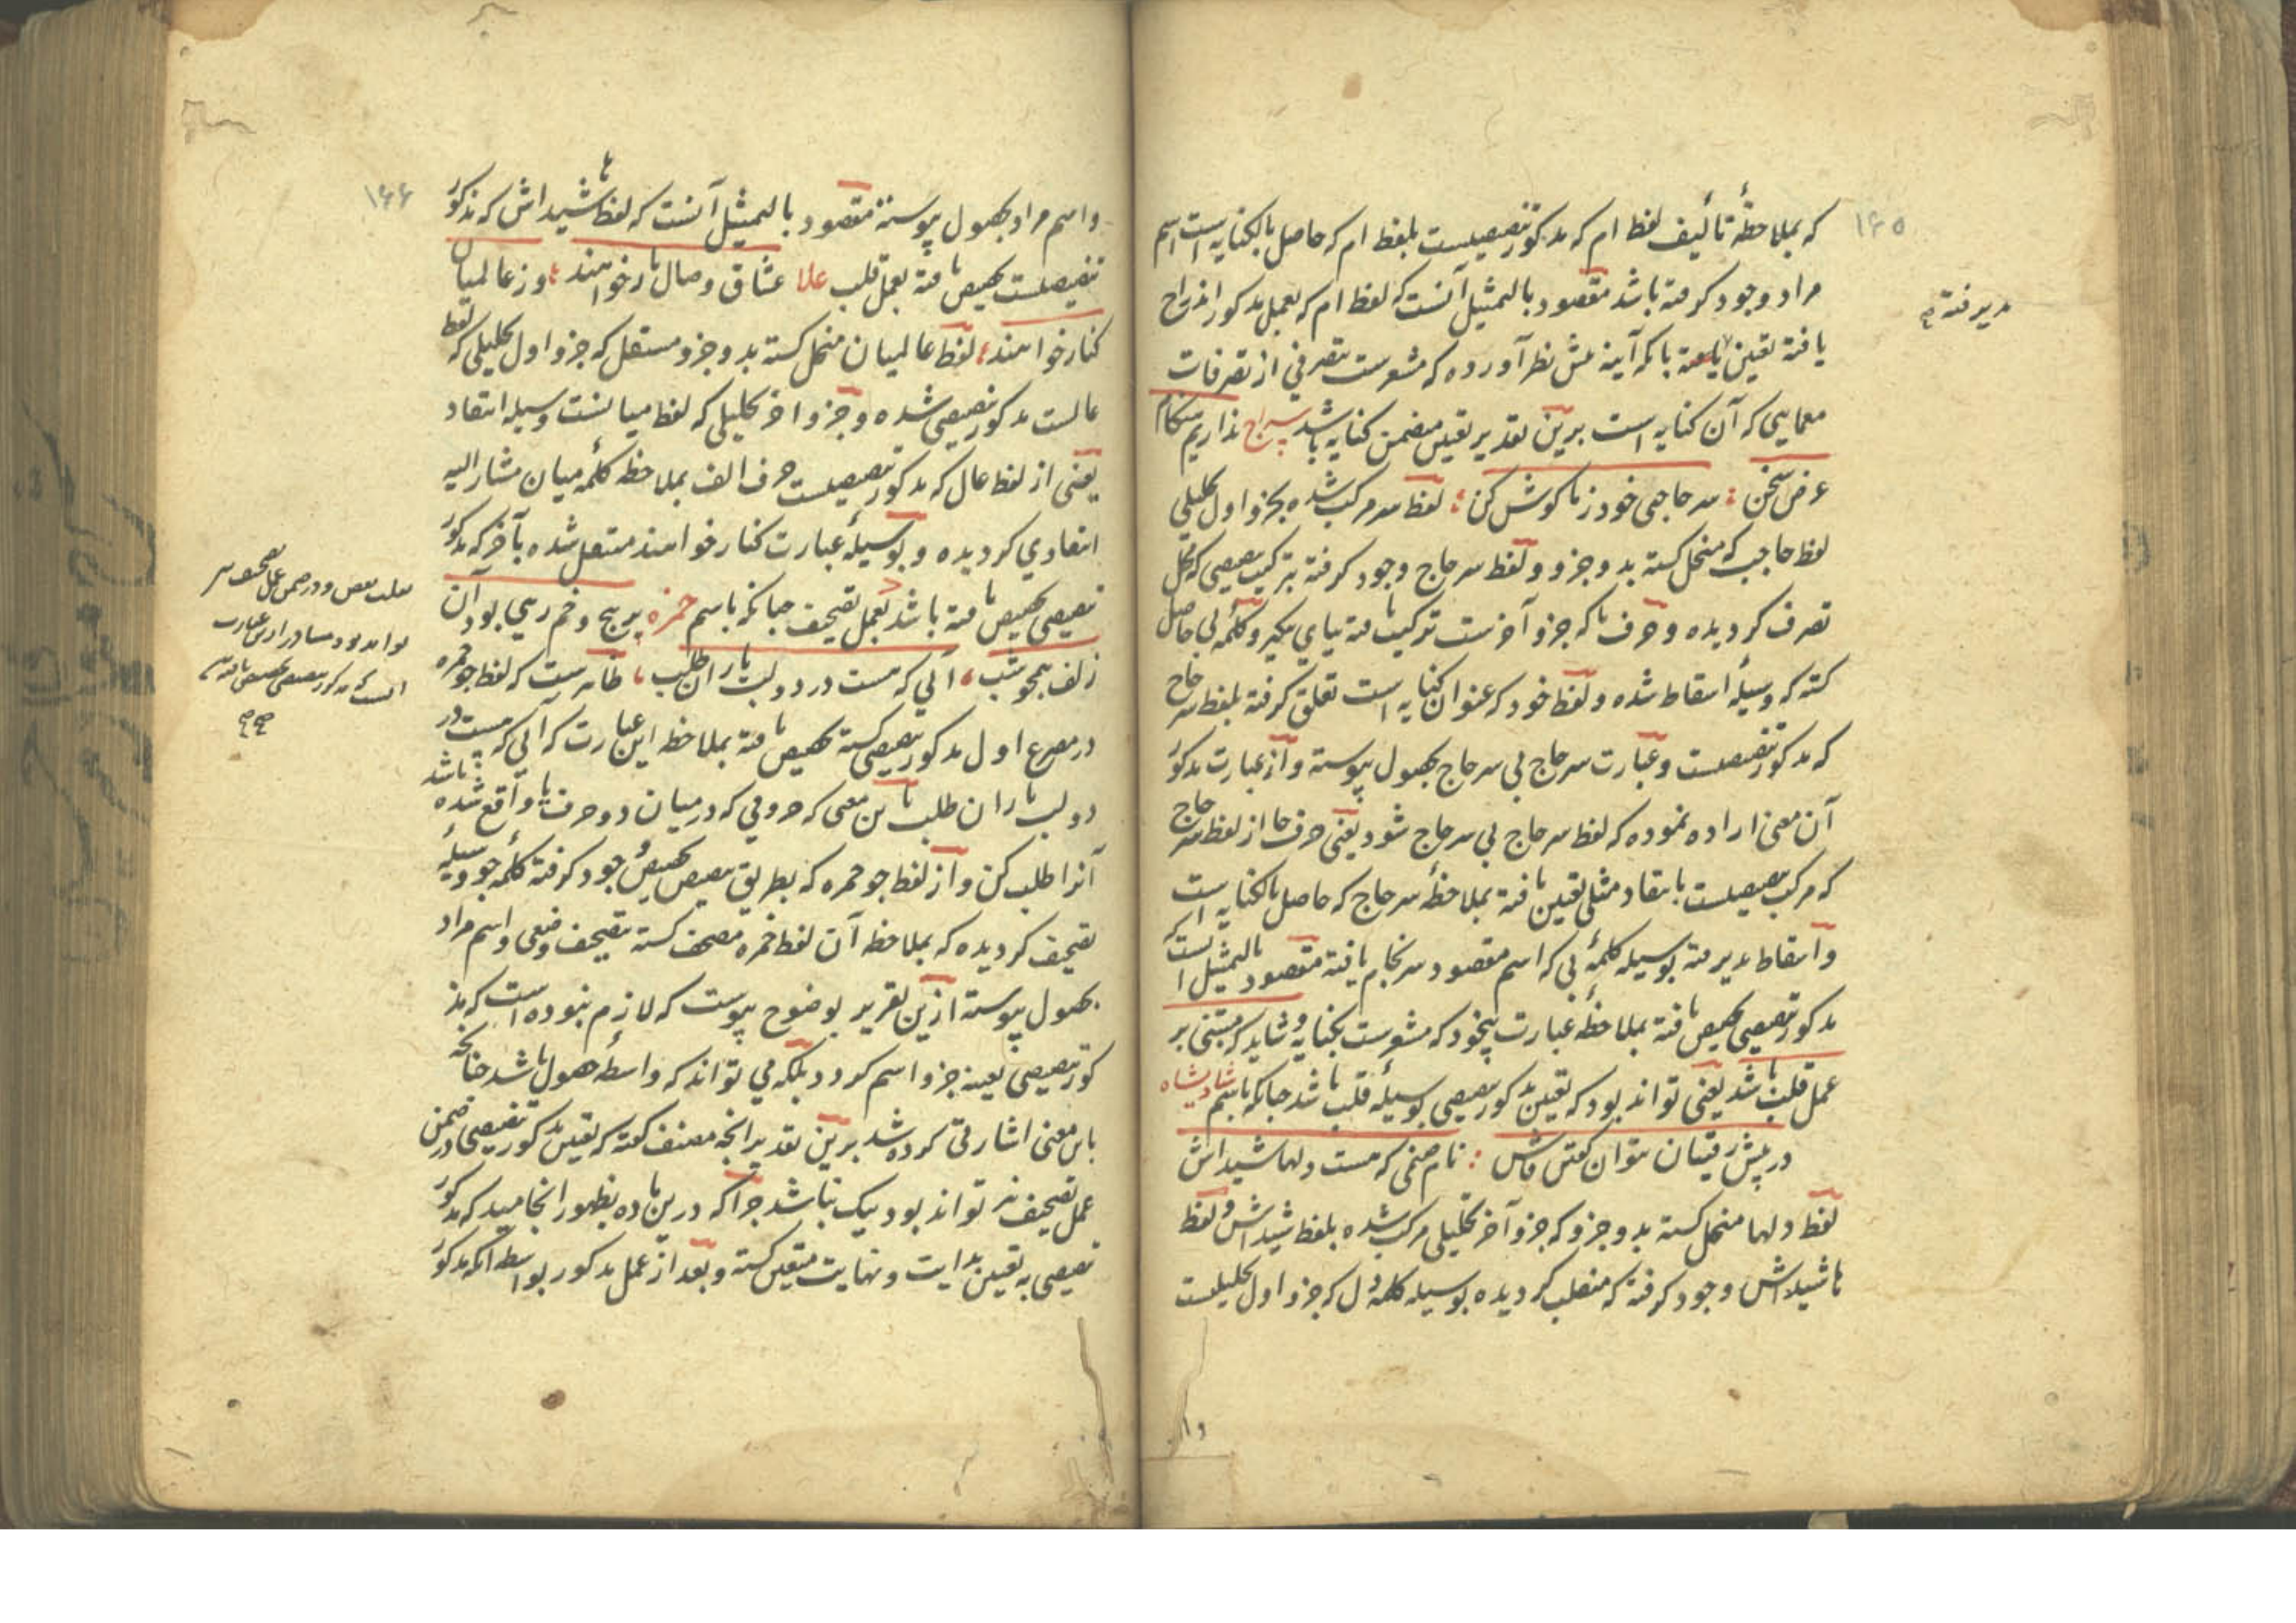 ١٦٥
که بملاحظهٔ تألیف لفظ ام که مذکور تنصیصیست بلفظ ام که حاصل بالکنایه است اسم
مراد وجود گرفته باشد مقصود بالتمثیل آنست که لفظ ام که بعمل مذکور اندراج
پذیرفته
یافته تعین یافته با که آینه عش نظر آورده که مشعرست بتصرفی از تصرفات
معمایی که آن کنایه است برین تقدیر تعین متضمن کنایه باشد سراج نداریم هنگام
عرض سخن : سر حاجی خود ز ما گوش کن : لفظ سر مرکب شده بجزو اول تحلیلی
لفظ حاجب که منحل گشته بدو جزو و لفظ سر حاج وجود گرفته بترکیب تنصیصی که محل
تصرف گردیده و حرف با که جزو آخرست ترکیب یافته بیای بگیر و کلمه بی حاصل
گشته که وسیلهٔ اسقاط شده و لفظ خود که عنوان کنایه است تعلق گرفته بلفظ سر حاج
که مذکور تنصیصیست و عبارت سر حاج بی سر حاج بحصول پیوسته و از عبارت مذکور
آن معنی اراده نموده که لفظ سر حاج بی سر حاج شود یعنی حرف حا از لفظ سر حاج
که مرکب تنصیصیست بانتقاد مثلی تعین یافته بملاحظهٔ سر حاج که حاصل بالکنایه است
و اسقاط پذیرفته بوسیله کلمهٔ بی که اسم مقصود سرانجام یافته مقصود بالتمثیل آنست که
مذکور تنصیصی تخصیص یافته بملاحظهٔ عبارت بیخود که مشعرست بکنایه و شاید که مبتنی بر
عمل قلب باشد یعنی تواند بود که تعین مذکور تنصیصی بوسیلهٔ قلب باشد چنانکه باسم شادیشاه
در پیش رقیبان نتوان گفتن فاش : نام صنمی که هست دلها شیداش
لفظ دلها منحل گشته بدو جزو که جزو آخر تحلیلی مرکب شده بلفظ شیداش و لفظ
ها شیداش وجود گرفته که منقلب گردیده بوسیله کلمهٔ دل که جزو اول تحلیلیست
١٦٦
و اسم مراد بحصول پیوسته مقصود بالتمثیل آنست که لفظ ها شیداش که مذکور
تنصیصیست تخصیص یافته بعمل قلب علا عشاق وصال یار خواهند : وز عالمیان
کنار خواهند : لفظ عالمیان منحل گشته بدو جزو مستقل که جزو اول تحلیلی که لفظ
عالست مذکور تنصیصی شده و جزو آخر تحلیلی که لفظ میانست وسیله انتقاد
یعنی از لفظ عال که مذکور تنصیصیست حرف الف بملاحظه کلمهٔ میان مشار الیه
انتقادی گردیده و بوسیلهٔ عبارت کنار خواهند منتقل شده بآخر که مذکور
تنصیصی تخصیص یافته باشد بعمل تصحیف چنانکه باسم حمزه پر پیچ و خم رهی بود آن
زلف همچو شب ، آلی که هست در دو لب یار آن طلب ، ظاهرست که لفظ جو خمره
در مصرع اول مذکور تنصیصی گشته تخصیص یافته بملاحظه این عبارت که آلی که هست در
دو لب یار آن طلب باین معنی که حروفی که در میان دو حرف با واقع شده باشد
آنرا طلب کن و از لفظ جو خمره که بطریق تنصیص تخصیص وجود گرفته کلمه جو وسیله
تصحیف گردیده که بملاحظه آن لفظ خمره مصحف گشته بتصحیف وضعی و اسم مراد
بحصول پیوسته ازین تقریر بوضوح پیوست که لازم نبوده است که مذ
کور تنصیصی بعینه جزو اسم گردد بلکه می تواند که واسطهٔ حصول باشد چنانچه
باین معنی اشارتی کرده شد برین تقدیر آنچه مصنف گفته که تعین مذکور تنصیصی در ضمن
عمل تصحیف نیز تواند بود نیک نباشد چرا که درین ماده بظهور انجامید که مذکور
تنصیصی به تعین بدایت و نهایت متعین گشته و بعد از عمل مذکور بواسطه آنکه مذکور